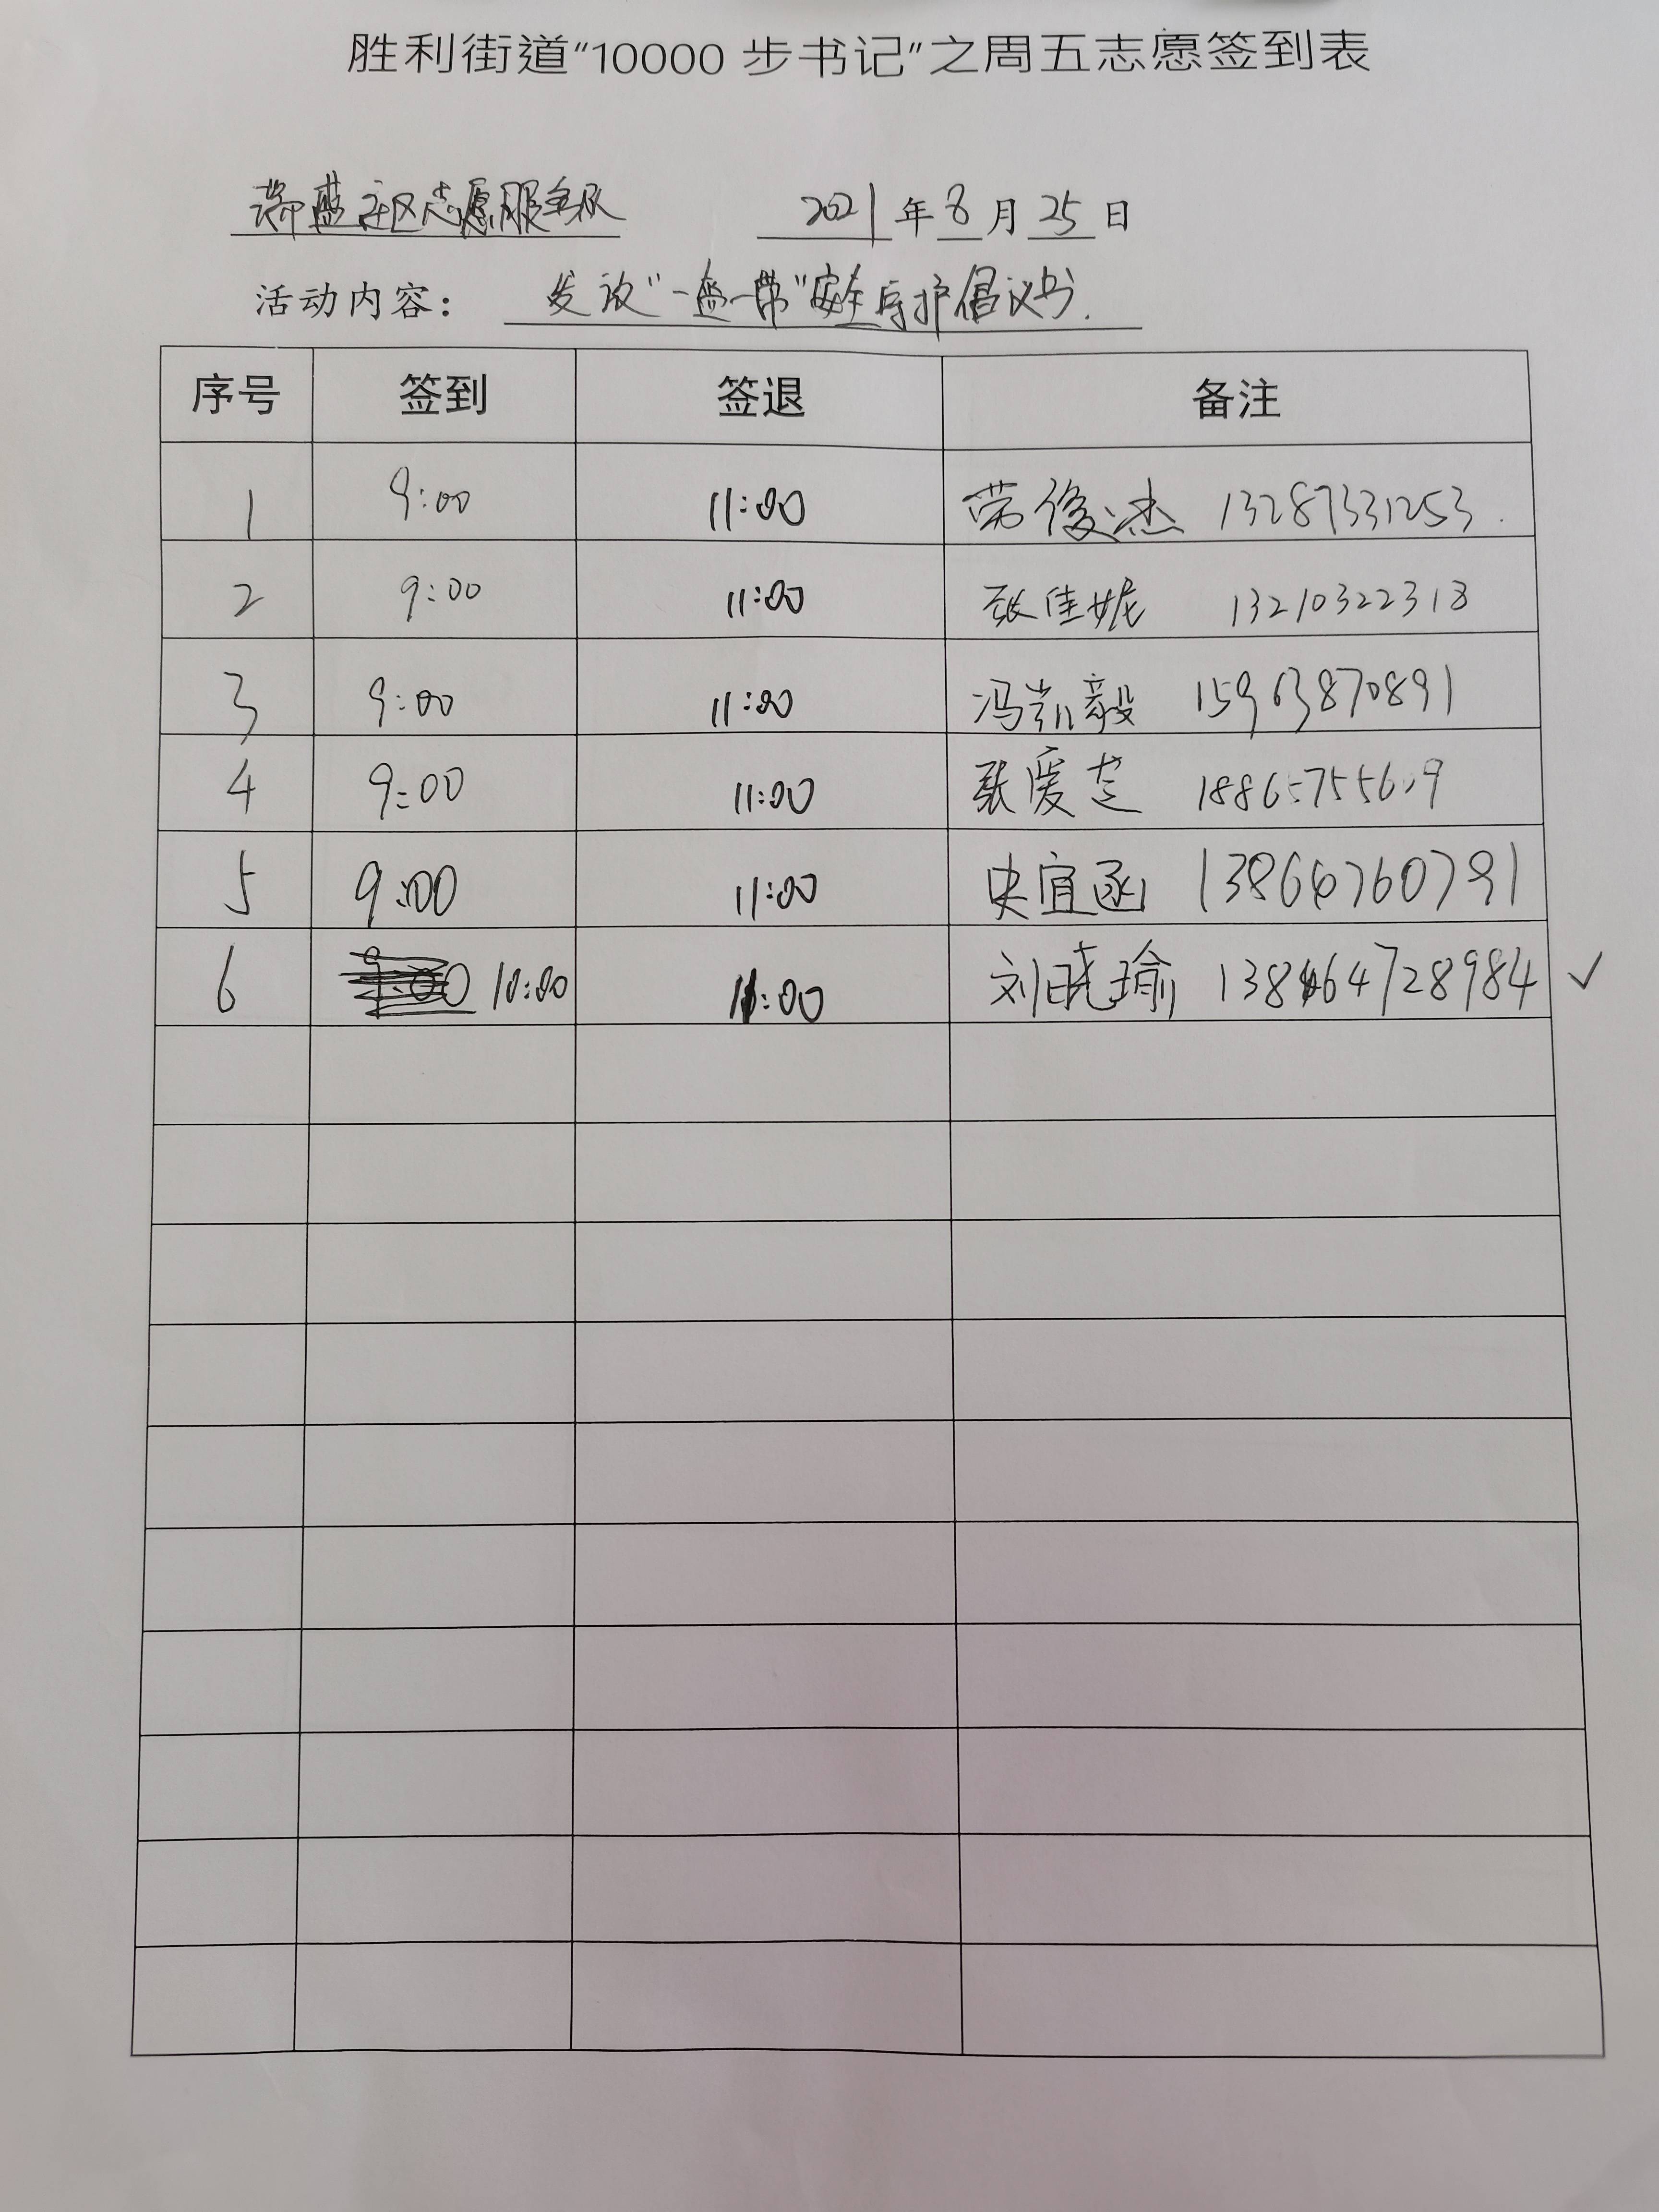 胜利街道“10000 步书记”之周五志愿签到表
社区志愿服务队 2021 年 8 月 25 日
活动内容： 发放“一盔一带”安全守护倡议书.
序号 签到 签退 备注
1 9:00 11:00 荣俊杰 13287331253
2 9:00 11:00 张佳妮 13210322318
3 9:00 11:00 冯凯毅 15963870891
4 9:00 11:00 张爱芝
5 9:00 11:00 史宜函
6 10:00 11:00 刘晓瑜